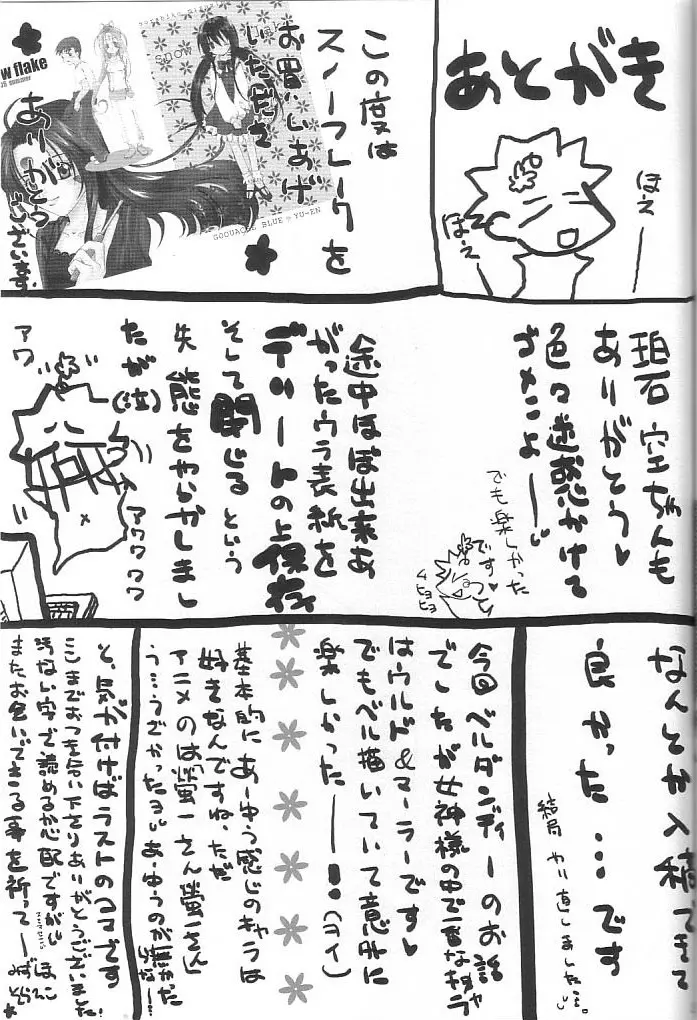 あとがき
ほえ――
ほえ――
この度は
スノーフレークを
お買いあげ
いただき
ありがとう
ございます。
w flake
GOOUACHE BLUE YU-EN
空ちゃんも
ありがとう♥
色々迷惑かけて
ゴメンよ――
でも楽しかった
です
途中ほぼ出来あ
がったウラ表紙を
デリートの上保存
そして閉じるという
失態をやらかしまし
たが(泣)
アワ
アワワワワ
なんとか入稿できて
良かった…です
結局やり直しました…。
今回ベルダンディーのお話
でしたが女神様の中で一番なキャラ
はウルド&マーラーです♥
でもベル描いていて意外に
楽しかった――!
基本的にあーゆう感じのキャラは
好きなんですね、ただ
アニメのは「螢一さん螢一さん」
う…うでかったよあーゆうのが無かった
と、気が付けばラストのコマです
ここまでおつき合い下さりありがとうございました!
汚ない字で読めるか心配ですが
またお会いできる事を祈って――